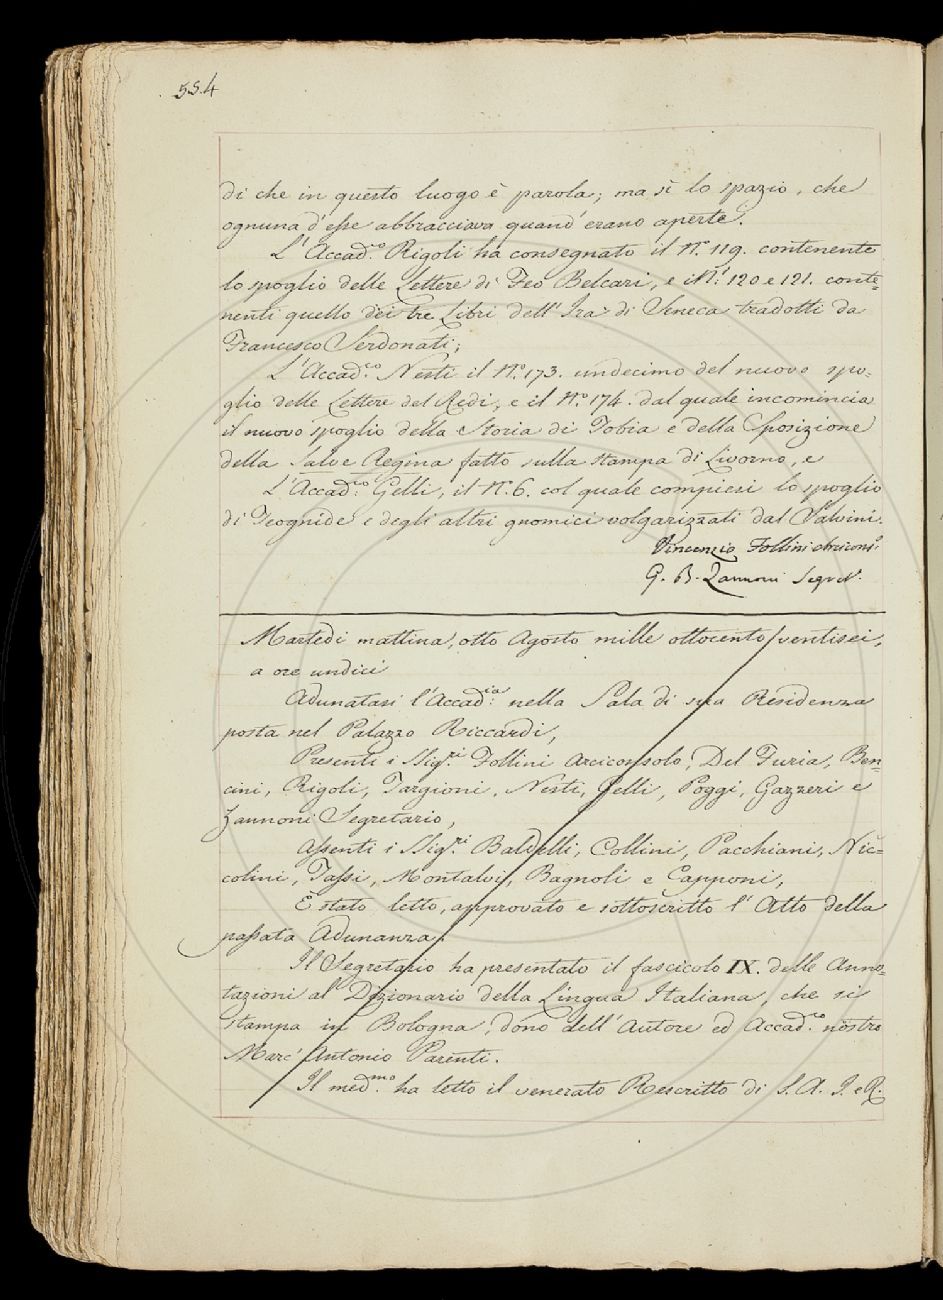 554
di che in questo luogo è parola; ma sì lo spazio, che
ognuna d'esse abbracciava quand'erano aperte.
L'Accad.co Rigoli ha consegnato il N.o 119. contenente
lo spoglio delle Lettere di Feo Belcari, e i N.i 120 e 121. conte=
nenti quello dei tre Libri dell'Ira di Seneca tradotti da
Francesco Serdonati;
L'Accad.co Nesti il N.o 173. undecimo del nuovo spo=
glio delle Lettere del Redi, e il N.o 174. dal quale incomincia
il nuovo spoglio della Storia di Tobia e della Sposizione
della Salve Regina fatto sulla stampa di Livorno, e
L'Accad.co Gelli, il N.o 6. col quale compiesi lo spoglio
di Teognide e degli altri gnomici volgarizzati dal Salvini.
Vincenzio Follini Arcicons.o
G. B. Zannoni Segret.
Martedì mattina, otto Agosto mille ottocento ventisei,
a ore undici
Adunatasi l'Accad.ia nella Sala di sua Residenza
posta nel Palazzo Riccardi,
Presenti i Sig.ri Follini Arciconsolo, Del Furia, Ben=
cini, Rigoli, Targioni, Nesti, Gelli, Poggi, Gazzeri e
Zannoni Segretario,
Assenti i Sig.ri Baldelli, Collini, Pacchiani, Nic=
colini, Tassi, Montalvi, Bagnoli e Capponi,
È stato letto, approvato e sottoscritto l'Atto della
passata Adunanza.
Il Segretario ha presentato il fascicolo IX. delle Anno=
tazioni al Dizionario della Lingua Italiana, che si
stampa in Bologna, dono dell'Autore ed Accad.co nostro
Marc'Antonio Parenti.
Il med.mo ha letto il venerato Rescritto di S. A. I. e R.